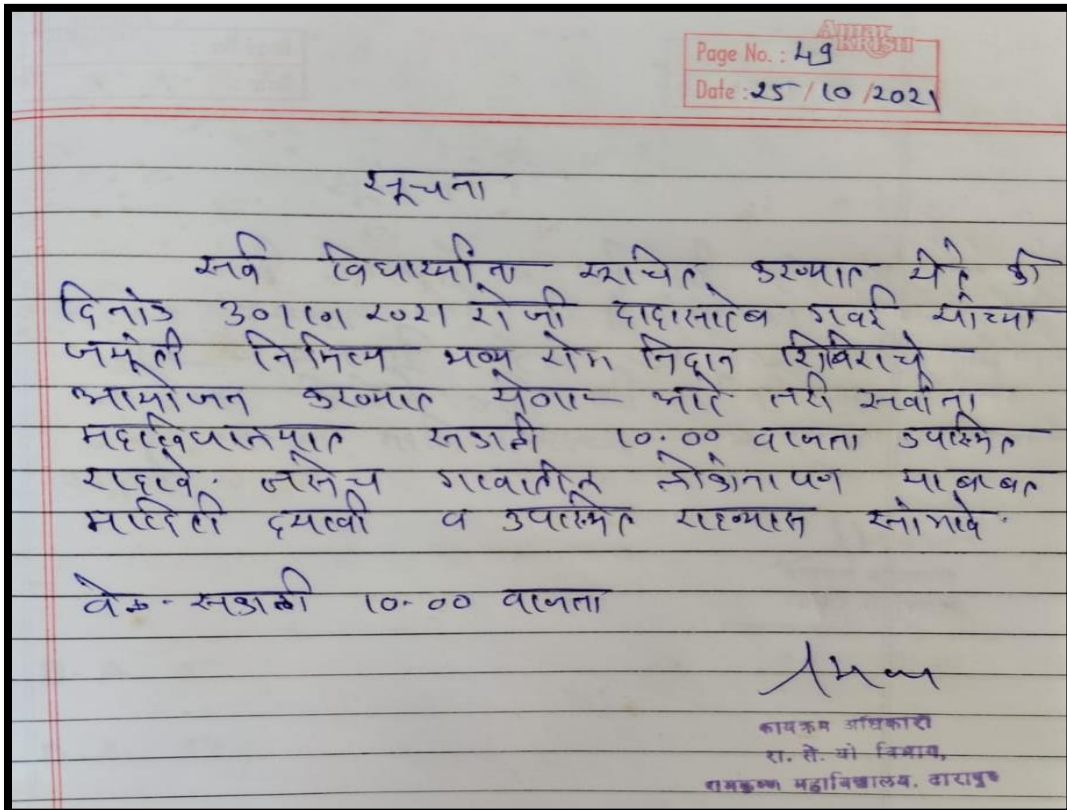 Amar KRISH
Page No. : 49
Date : 25 / 10 / 2021
सूचना
सर्व विद्यार्थ्यांना सुचित करण्यात येते की
दिनांक 30।10। 2021 रोजी दादासाहेब गवई यांच्या
जयंती निमित्य भव्य रोग निदान शिबिराचे
आयोजन करण्यात येणार आहे तरी सर्वांना
महाविद्यालयात सकाळी 10.00 वाजता उपस्थित
राहावे. तसेच गावातील लोकांना पण याबाबत
माहिती द्यावी व उपस्थित राहण्यास सांगावे.
वेळ - सकाळी 10-00 वाजता
कार्यक्रम अधिकारी
रा. से. यो विभाग,
रामकृष्ण महाविद्यालय, दारापुर